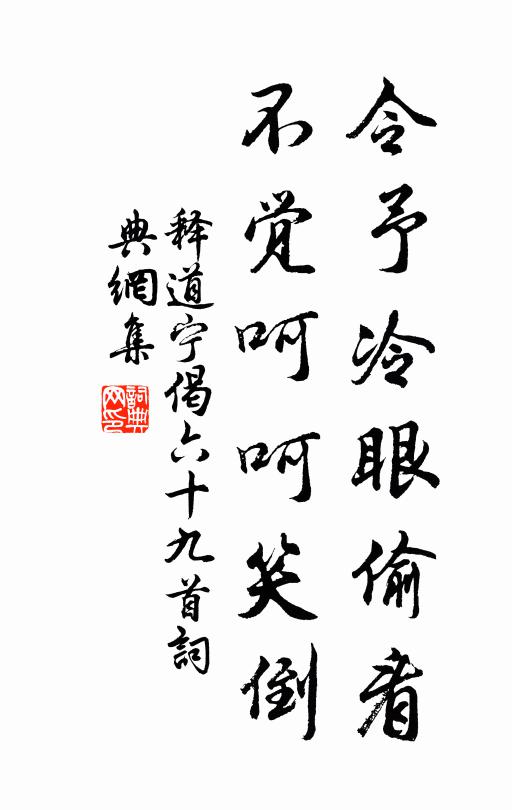 令予冷眼偷看
不觉呵呵笑倒
释道宁偈六十九首詞
典網集
詞典
网印